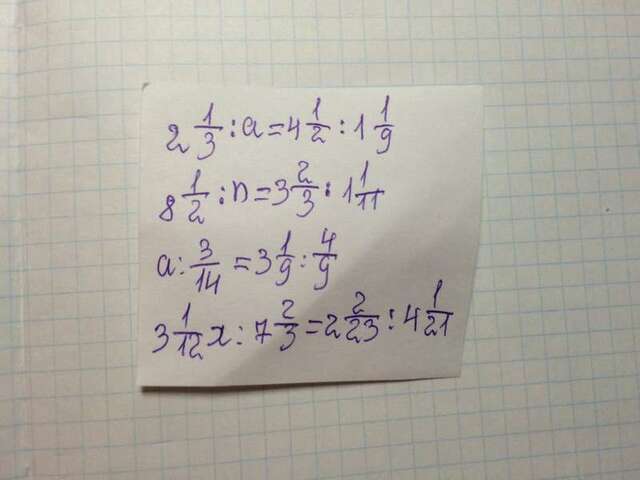 2 1/3 : a = 4 1/2 : 1 1/9
8 1/2 : n = 3 2/3 : 1 1/11
a : 3/14 = 3 1/9 : 4/9
3 1/12 x : 7 2/3 = 2 2/23 : 4 1/21